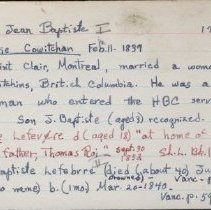 Jean Baptiste I 1
ie Cowitchan Feb. 11. 1839
int Clair, Montreal, married a woma
itchins, British Columbia. He was a
man who entered the HBC serv
Son J. Baptiste (aged 3) recognized.
e Lefevre d (aged 13) "at home of
father, Thomas Roi" Sept. 30 1852 St.-L. Bd. I
aptiste Lefebvre (died (about 40) Ju
drowned) - Vanc.
o name) b. (1 mo) Mar. 20-1840.
Vanc. p. 5